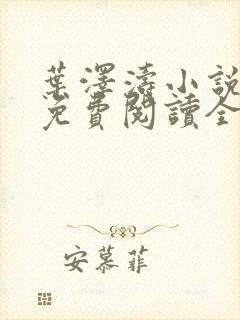 葉澤濤小說
免費閱讀全
安慕菲